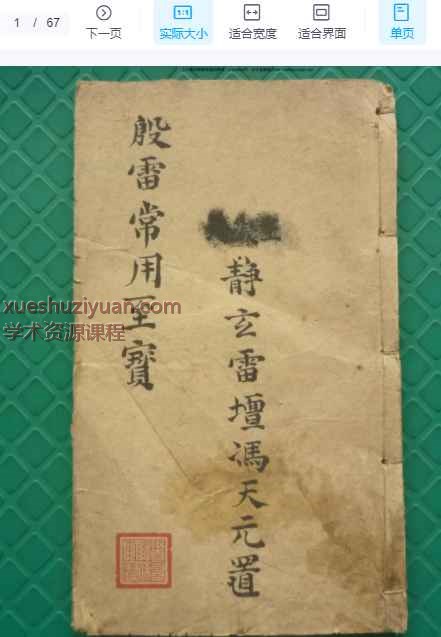 1 / 67
下一页
实际大小
适合宽度
适合界面
单页
静玄雷壇馮天元置
殷雷常用至寶
xueshuziyuan.com
学术资源课程